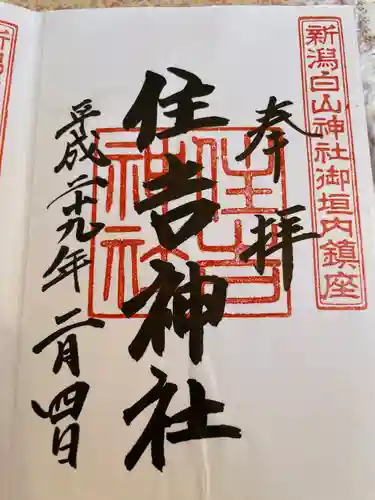 新潟白山神社御垣内鎮座
奉拝
住吉神社
住吉神社
平成二十九年
二月四日